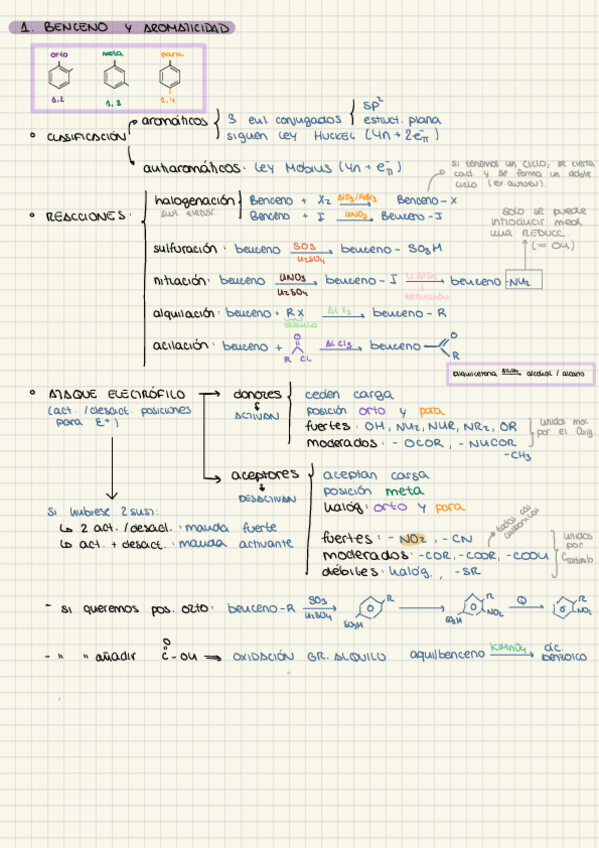 1. BENCENO Y AROMATICIDAD
orto meta para
1,2 1,3 1,4
• CLASIFICACIÓN
aromáticos
3 enl conjugados
sp²
estruct. plana
siguen ley HUCKEL (4n + 2e⁻π)
antiaromáticos: ley Mobius (4n + e⁻π)
si tenemos un ciclo, se cierra
y se forma un doble
ciclo
• REACCIONES:
halogenación
Benceno + X₂ Benceno - X
Benceno + I HNO₃ Benceno - I
solo se puede
introducir med.
una REDUCC.
(= OH)
sulfuración: benceno SO3 H₂SO₄ benceno - SO₃H
nitración: benceno HNO₃ H₂SO₄ benceno - I REDUCCIÓN benceno -NH₂
alquilación: benceno + RX AlX₃ benceno - R
alquilo
acilación: benceno + O R CL AlCl₃ benceno O R
alquilcetona alcohol / alcano
• ATAQUE ELECTRÓFILO
(act. / desact. posiciones
para E⁺)
donores
ACTIVAN
ceden carga
posición orto y para
fuertes: OH, NH₂, NHR, NR₂, OR
moderados: - OCOR, - NHCOR
-CH₃
unidos
por el Oxig.
aceptores
DESACTIVAN
aceptan carga
posición meta
halóg: orto y para
todos con
fuertes: - NO₂, -CN
moderados: -COR, -COOR, -COOH
débiles: halóg, -SR
unidos
por
Si hubiese 2 sust:
↳ 2 act. / desact.: manda fuerte
↳ act. + desact.: manda activante
- si queremos pos. orto: benceno-R SO₃ H₂SO₄ R SO₃H R NO₂ SO₃H R NO₂
- " " añadir O C - OH ⇒ OXIDACIÓN GR. ALQUILO aquilbenceno KMnO₄ ác. benzoico